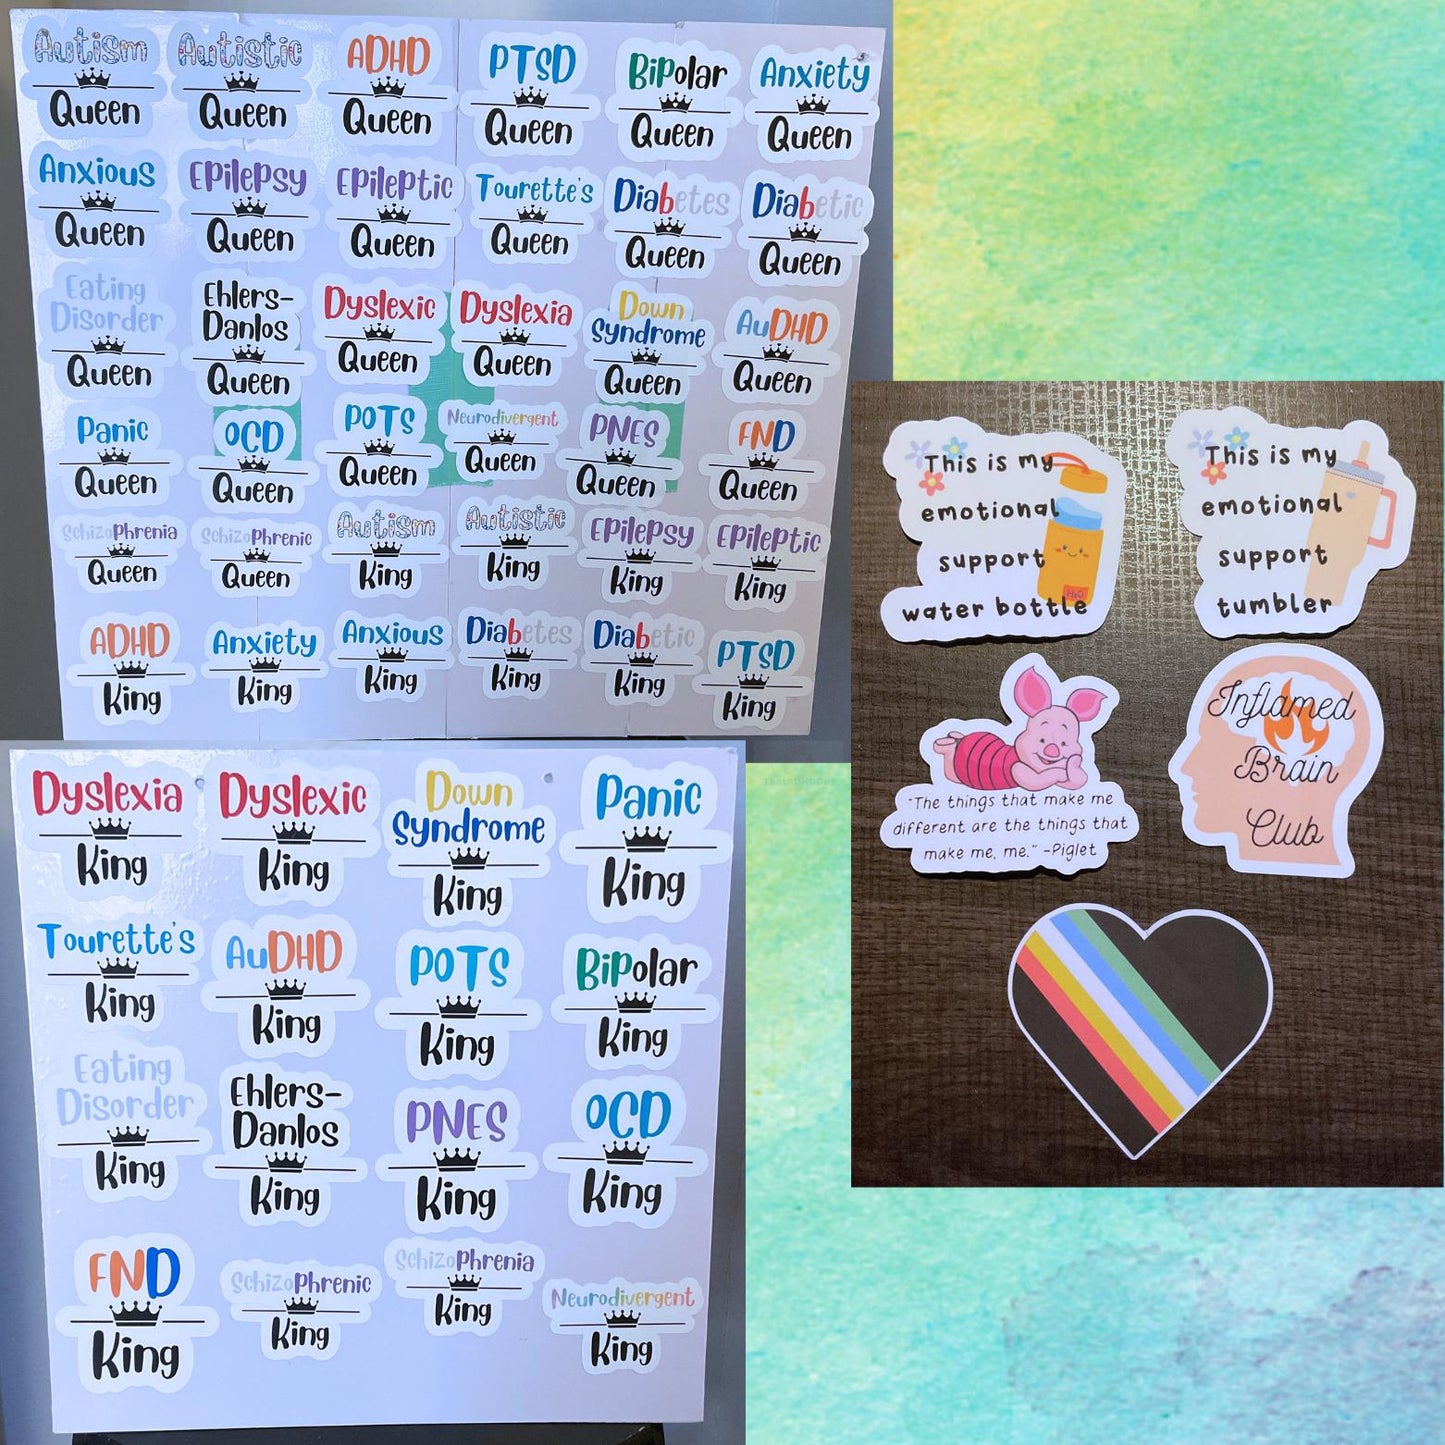 Autism
Queen
Autistic
Queen
ADHD
Queen
PTSD
Queen
BiPolar
Queen
Anxiety
Queen
Anxious
Queen
Epilepsy
Queen
Epileptic
Queen
Tourette's
Queen
Diabetes
Queen
Diabetic
Queen
Eating
Disorder
Queen
Ehlers-
Danlos
Queen
Dyslexic
Queen
Dyslexia
Queen
Down
Syndrome
Queen
AuDHD
Queen
Panic
Queen
OCD
Queen
POTS
Queen
Neurodivergent
Queen
PNES
Queen
FND
Queen
SchizoPhrenia
Queen
SchizoPhrenic
Queen
Autism
King
Autistic
King
Epilepsy
King
Epileptic
King
ADHD
King
Anxiety
King
Anxious
King
Diabetes
King
Diabetic
King
PTSD
King
Dyslexia
King
Dyslexic
King
Down
Syndrome
King
Panic
King
Tourette's
King
AuDHD
King
POTS
King
BiPolar
King
Eating
Disorder
King
Ehlers-
Danlos
King
PNES
King
OCD
King
FND
King
SchizoPhrenic
King
SchizoPhrenia
King
Neurodivergent
King
This is my
emotional
support
water bottle
H2O
This is my
emotional
support
tumbler
"The things that make me
different are the things that
make me, me." -Piglet
Inflamed
Brain
Club